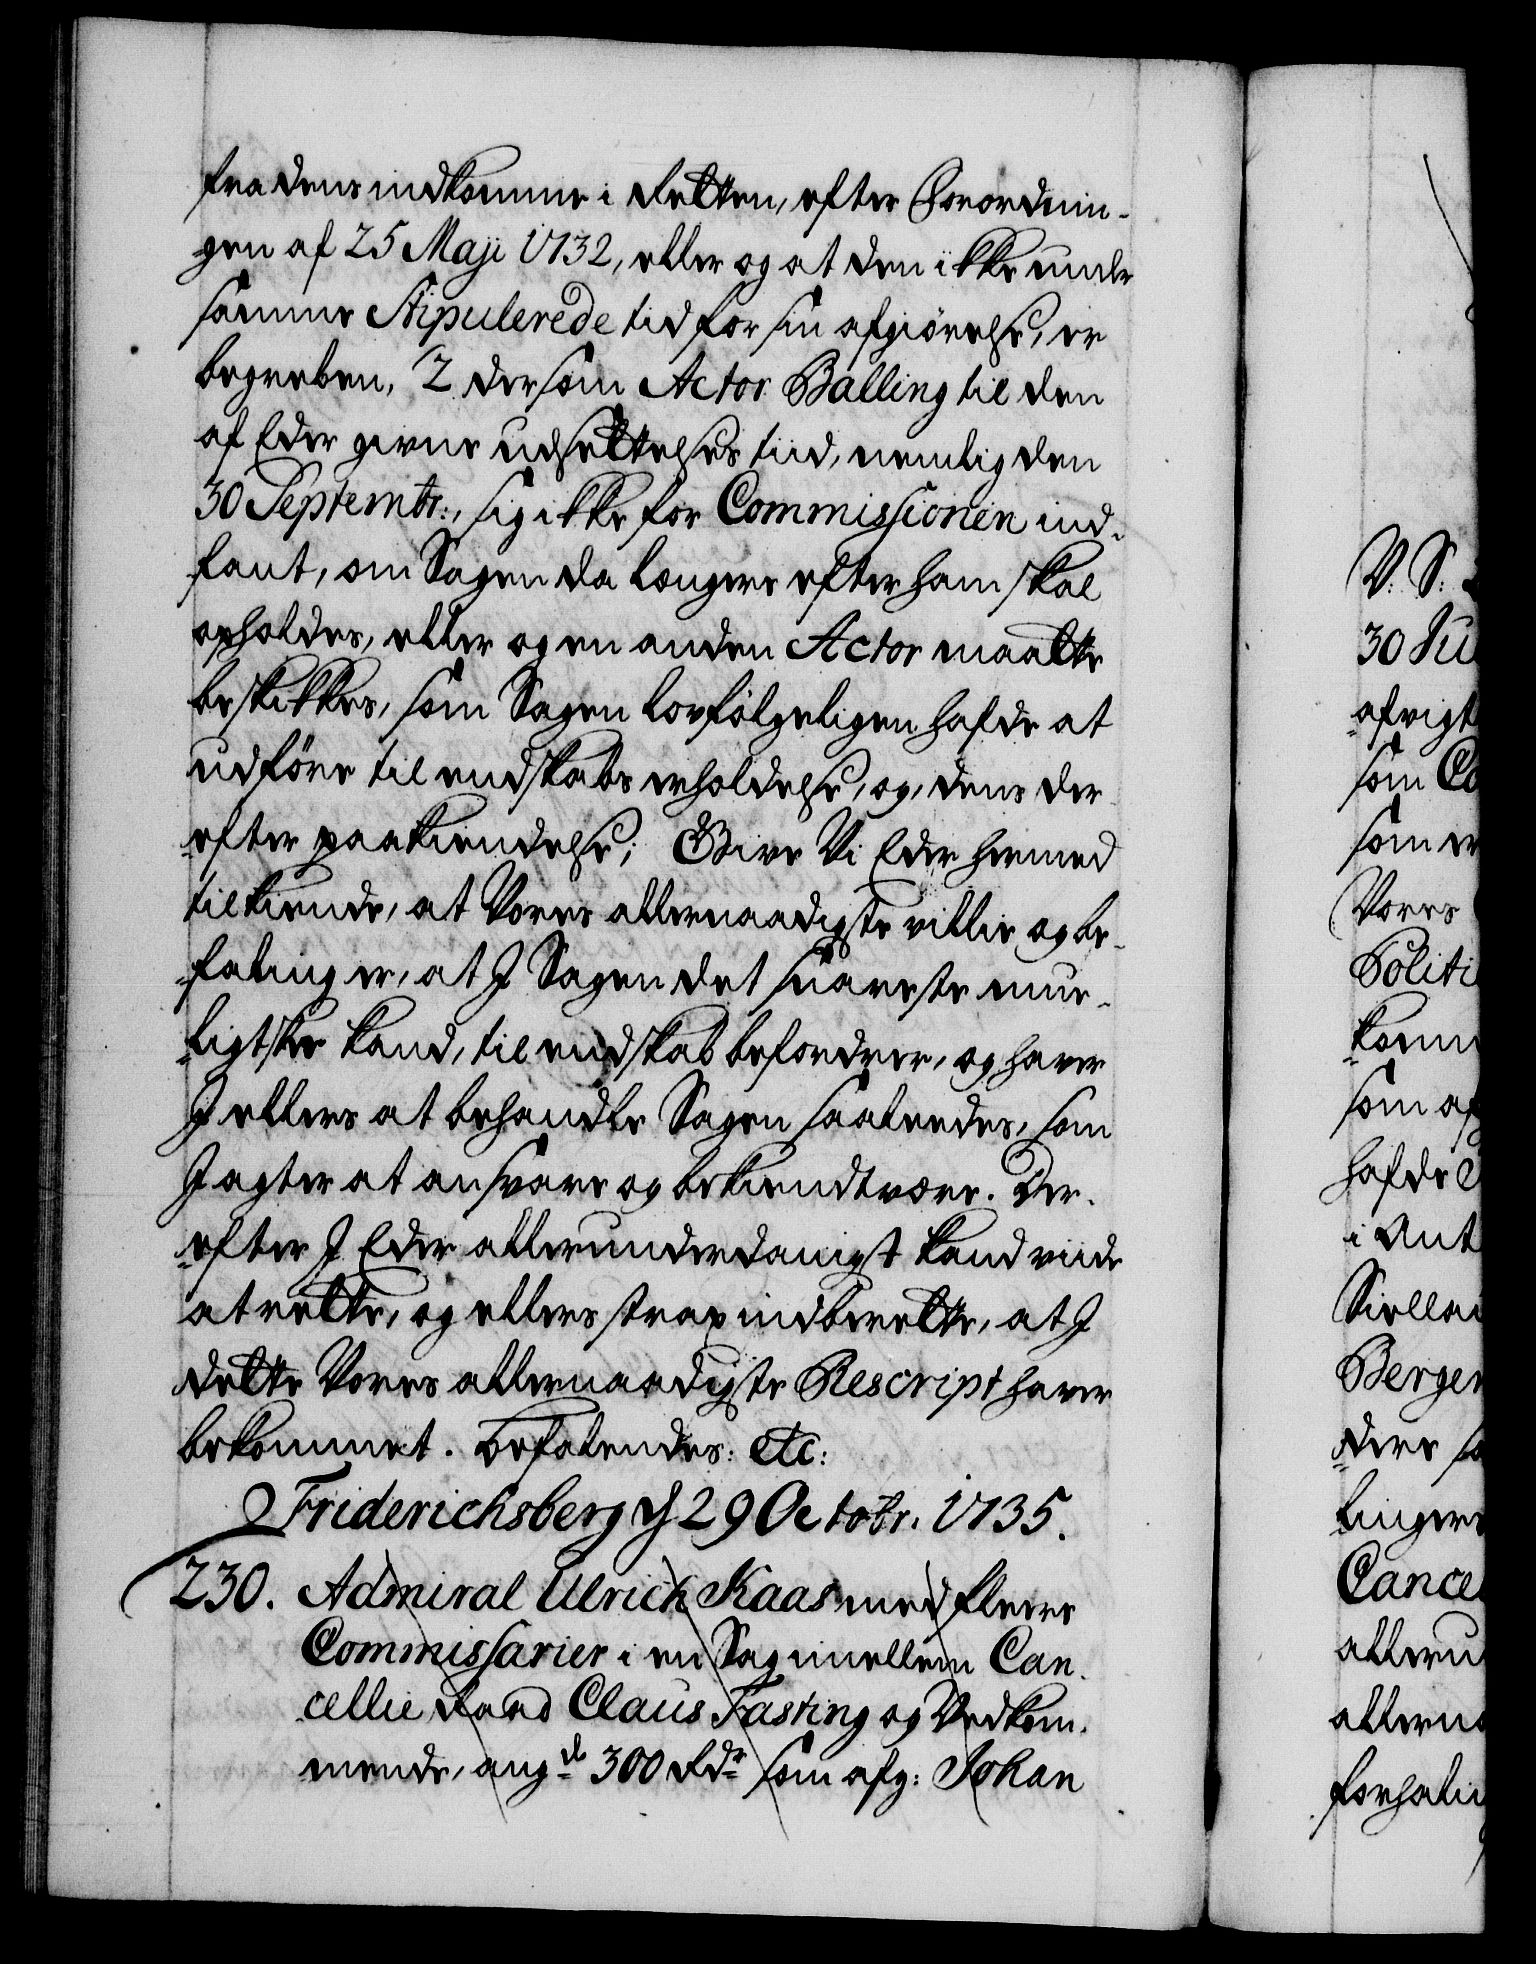 fra dens indkomme i Retten, efter Forordnin-
gen af 25 Maji 1732, eller og at den ikke under
samme Stipulerede tid for sin afgiörelse, er
begreben, 2 dersom Actor Balling til den
af Eder givne udsettelses tiid, nemlig den
30 Septembr:, sig ikke for Commissionen ind-
fant, om Sagen da længere efter ham skal
opholdes, eller og en anden Actor maatte
beskikkes, som Sagen lovfölgeligen hafde at
udföre til endskabs erholdelse, og, dens der
-efter paakiendelse; Give Vi Eder hermed
tilkiende, at Vores allernaadigste villie og be-
-faling er, at I Sagen det snareste mue-
-ligt skee kand, til endskab befordrer, og haver
I ellers at behandle Sagen saaledes, som
I agter at ansvare og bekiendt være. Der-
-efter I Eder allerunderdanigst kand viide
at rette, og ellers strax indberette, at I
dette Vores allernaadigste Rescript haver
bekommet. Befalendes: etc:
Friderichsberg d 29 Octobr. 1735.
230. Admiral Ulrich Kaas med fleere
Commissarier i en Sag imellem Can-
cellie Raad Claus Fasting og Vedkom-
mende, angde 300 Rdr som afg: Johan
V. S.
30 Ju
afvigt
som Co
som er
Vores
Politi
komm
som af
hafde
i Ant
Siellan
Bergen
dere sa
lingers
Cancel
alleru
allerna
forhali